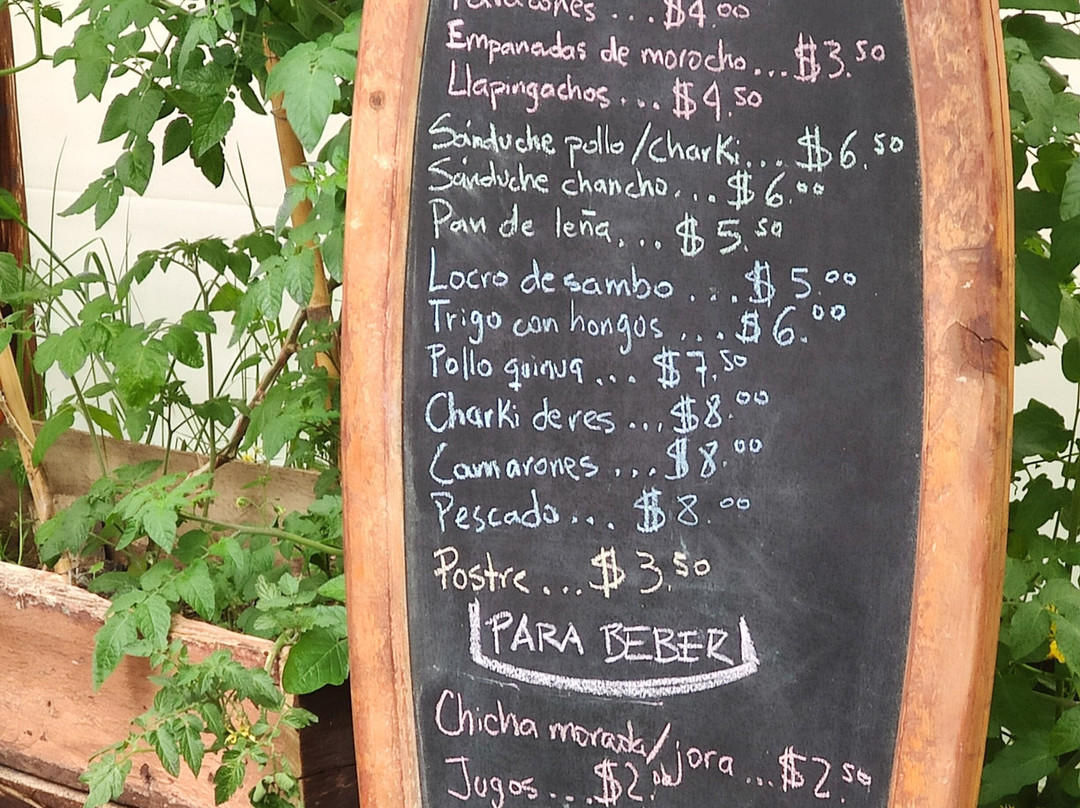 ... $4.00
Empanadas de morocho... $3.50
Llapingachos... $4.50
Sánduche pollo/charki... $6.50
Sánduche chancho... $6.00
Pan de leña... $5.50
Locro de sambo ... $5.00
Trigo con hongos ... $6.00
Pollo quinua ... $7.50
Charki de res ... $8.00
Camarones ... $8.00
Pescado... $8.00
Postre... $3.50
PARA BEBER
Chicha morada/jora ... $2.50
Jugos ... $2.00